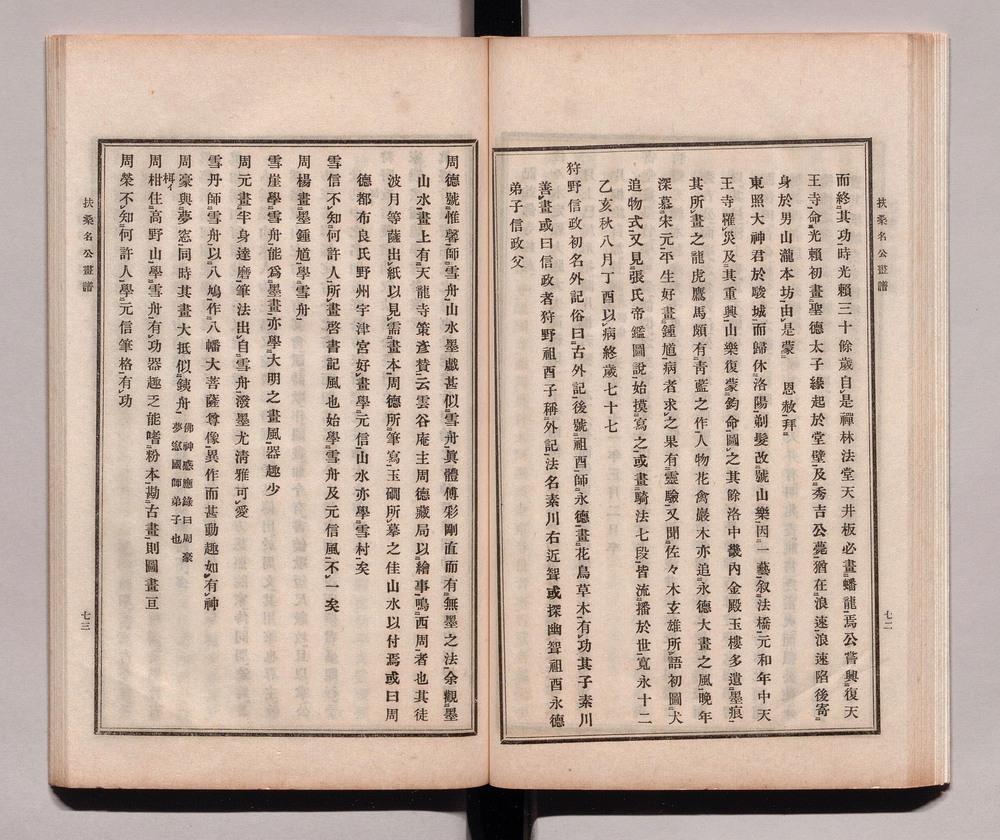 扶桑名公畫譜
七二
而終其功時光賴三十餘歲自是禪林法堂天井板必畫蟠龍焉公嘗興復天
王寺命光賴初畫聖德太子緣起於堂壁及秀吉公薨猶在浪速浪速陷後寄
身於男山瀧本坊由是蒙 恩赦拜
東照大神君於駿城而歸休洛陽剃髮改號山樂因一藝叙法橋元和年中天
王寺罹災及其重興山樂復蒙鈞命圖之其餘洛中畿內金殿玉樓多遺墨痕
其所畫之龍虎鷹馬頗有靑藍之作人物花禽巖木亦追永德大畫之風晚年
深慕宋元平生好畫鍾馗病者求之果有靈驗又聞佐々木玄雄所語初圖犬
追物式又見張氏帝鑑圖說始摸寫之或畫騎法七段皆流播於世寬永十二
乙亥秋八月丁酉以病終歲七十七
狩野信政初名外記俗曰古外記後號祖酉師永德畫花鳥草木有功其子素川
善畫或曰信政者狩野祖酉子稱外記法名素川右近聟或探幽聟祖酉永德
弟子信政父
周德號惟馨師雪舟山水墨戲甚似雪舟眞體傅彩剛直而有無墨之法余觀墨
山水畫上有天龍寺策彥贊云雲谷庵主周德藏局以繪事鳴西周者也其徒
波月等薩出紙以見需畫本周德所筆寫玉磵所摹之佳山水以付焉或曰周
德都布良氏野州宇津宮好畫學元信山水亦學雪村矣
雪信不知何許人所畫啓書記風也始學雪舟及元信風不一矣
周楊畫墨鍾馗學雪舟
雪崖學雪舟能爲墨畫亦學大明之畫風器趣少
周元畫半身達磨筆法出自雪舟潑墨尤淸雅可愛
雪丹師雪舟以八鳩作八幡大菩薩尊像異作而甚動趣如有神
周豪與夢窓同時其畫大抵似銕舟 佛神感應錄曰周豪
夢窓國師弟子也
周柑住高野山學雪舟有功器趣乏能嗜粉本勘古畫則圖畫亘
周榮不知何許人學元信筆格有功
扶桑名公畫譜
七三